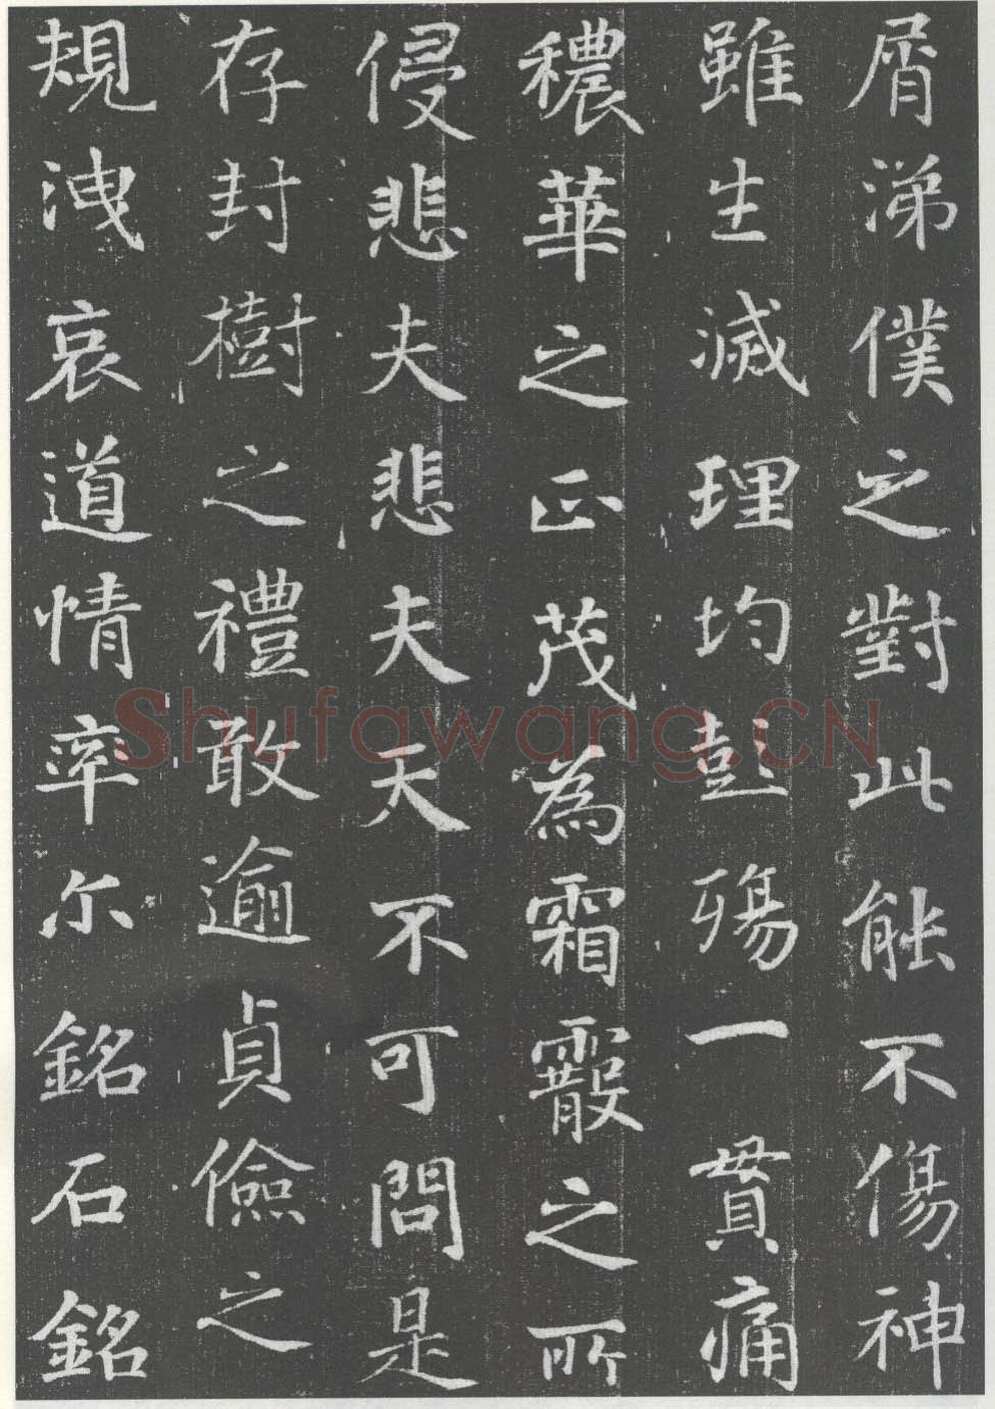 屑涕僕之對此能不傷神
雖生滅理均彭殤一貫痛
穠華之正茂為霜霰之所
侵悲夫悲夫天不可問是
存封樹之禮敢逾貞儉之
規洩哀道情率尔銘石銘
Shufawang.CN